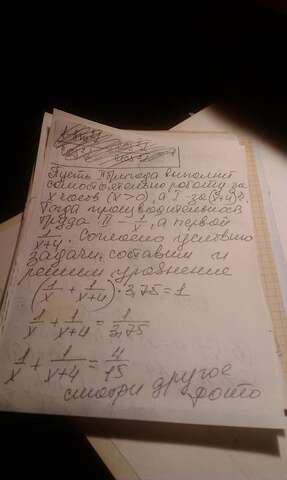 Пусть II бригада выполнит
самостоятельно работу за
x часов (x>0), а I - за (x+4) ч.
Тогда производительность
труда II - 1/x, а первой
1/(x+4). Согласно условию
задачи, составим и
решим уравнение
(1/x + 1/(x+4)) · 3,75 = 1
1/x + 1/(x+4) = 1/3,75
1/x + 1/(x+4) = 4/15
смотри другое
фото